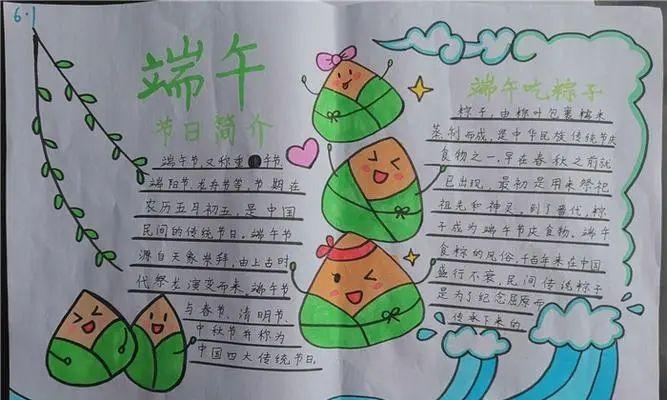 6.1
端午
节日简介
端午节又称重 午节
端阳节、龙舟节等,节期在
农历五月初五,是中国
民间的传统节日。端午节
源自天象崇拜,由上古时
代祭龙演变而来,端午节
与春节、清明节、
中秋节并称为
中国四大传统节日
端午吃粽子
粽子,由粽叶包裹糯米
蒸制而成,是中华民族传统节庆
食物之一,早在春秋之前就
已出现,最初是用来祭祀
祖先和神灵,到了晋代,粽
子成为端午节庆食物。端午
食粽的风俗,千百年来在中国
盛行不衰,民间传说粽子
是为了纪念屈原而
传承下来的